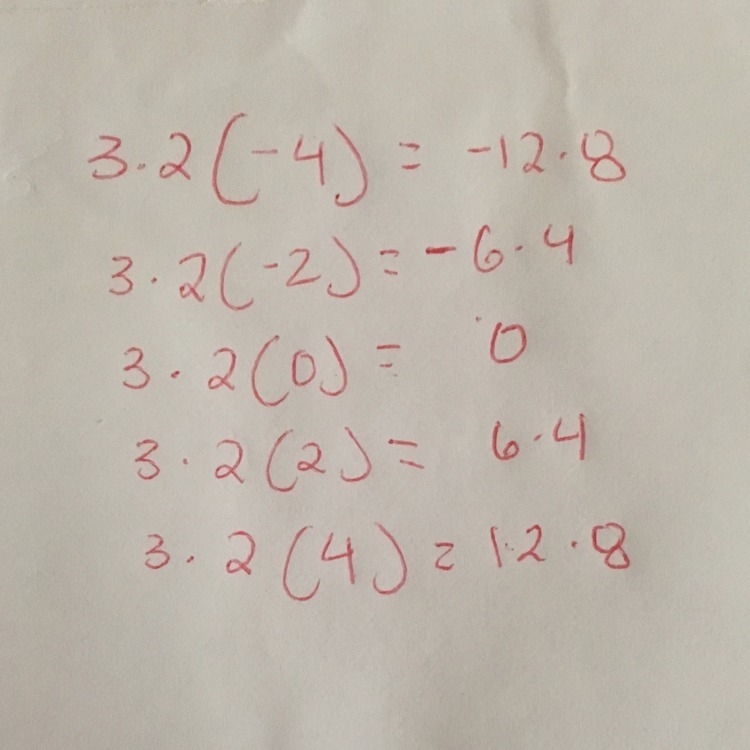 3.2(-4) = -12.8
3.2(-2) = -6.4
3.2(0) = 0
3.2(2) = 6.4
3.2(4) = 12.8